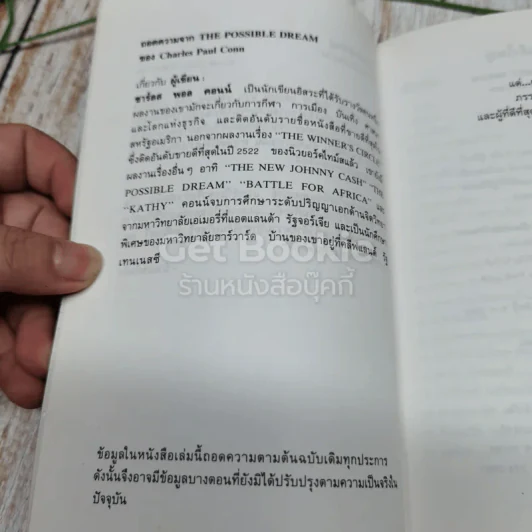 ถอดความจาก THE POSSIBLE DREAM
ของ Charles Paul Conn
เกี่ยวกับ ผู้เขียน :
ชาร์ลส พอล คอนน์ เป็นนักเขียนอิสระที่ได้รับรางวัล
ผลงานของเขามักจะเกี่ยวกับการกีฬา การเมือง บันเทิง
และโลกแห่งธุรกิจ และติดอันดับรายชื่อหนังสือที่ขายดีที่สุด
สหรัฐอเมริกา นอกจากผลงานเรื่อง "THE WINNER'S CIRCLE"
ซึ่งติดอันดับขายดีที่สุดในปี 2522 ของนิวยอร์คไทม์สแล้ว
ผลงานเรื่องอื่นๆ อาทิ "THE NEW JOHNNY CASH" "THE
POSSIBLE DREAM" "BATTLE FOR AFRICA" และ
"KATHY" คอนน์จบการศึกษาระดับปริญญาเอกด้านจิตวิทยา
จากมหาวิทยาลัยเอเมอรี่ที่แอตแลนต้า รัฐจอร์เจีย และเป็นนักศึกษา
พิเศษของมหาวิทยาลัยฮาร์วาร์ด บ้านของเขาอยู่ที่คลีฟแลนด์ รัฐ
เทนเนสซี
Get Bookie
ร้านหนังสือบุ๊คกี้
ข้อมูลในหนังสือเล่มนี้ถอดความตามต้นฉบับเดิมทุกประการ
ดังนั้นจึงอาจมีข้อมูลบางตอนที่ยังมิได้ปรับปรุงตามความเป็นจริงใน
ปัจจุบัน
แด่...
ภรร
และผู้ที่ดีที่สุด